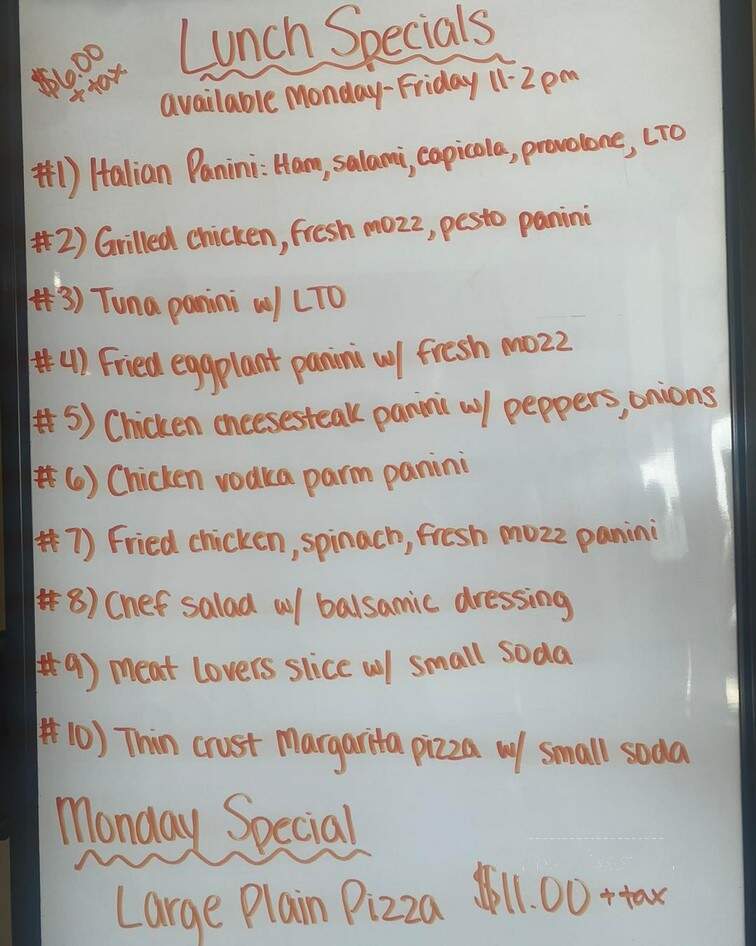 $6.00
+ tax
Lunch Specials
available Monday-Friday 11-2pm
#1) Italian Panini: Ham, salami, capicola, provolone, LTO
#2) Grilled chicken, fresh mozz, pesto panini
#3) Tuna panini w/ LTO
#4) Fried eggplant panini w/ fresh mozz
#5) Chicken cheesesteak panini w/ peppers, onions
#6) Chicken vodka parm panini
#7) Fried chicken, spinach, fresh mozz panini
#8) Chef salad w/ balsamic dressing
#9) Meat Lovers slice w/ small soda
#10) Thin crust Margarita pizza w/ small soda
Monday Special
Large Plain Pizza $11.00 + tax